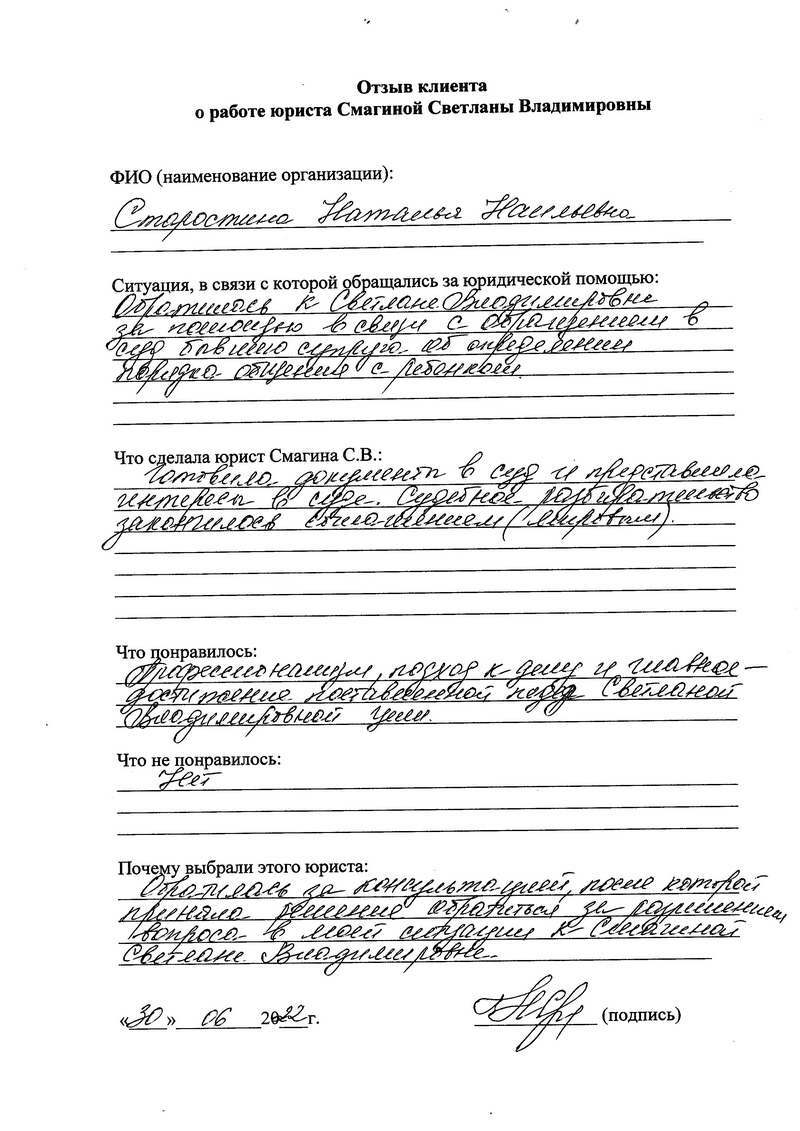 Отзыв клиента
о работе юриста Смагиной Светланы Владимировны
ФИО (наименование организации):
Старостина Наталья Наильевна
Ситуация, в связи с которой обращались за юридической помощью:
Обратилась к Светлане Владимировне
за помощью в связи с обращением в
суд бывшего супруга об определении
порядка общения с ребенком.
Что сделала юрист Смагина С.В.:
Готовила документы в суд и представляла
интересы в суде. Судебное разбирательство
закончилось соглашением (мировым).
Что понравилось:
Профессионализм, подход к делу и главное –
достижение поставленной перед Светланой
Владимировной цели.
Что не понравилось:
Нет
Почему выбрали этого юриста:
Обратилась за консультацией, после которой
приняла решение обратиться за разрешением
вопроса в моей ситуации к Смагиной
Светлане Владимировне.
«30» 06 2022 г. (подпись)